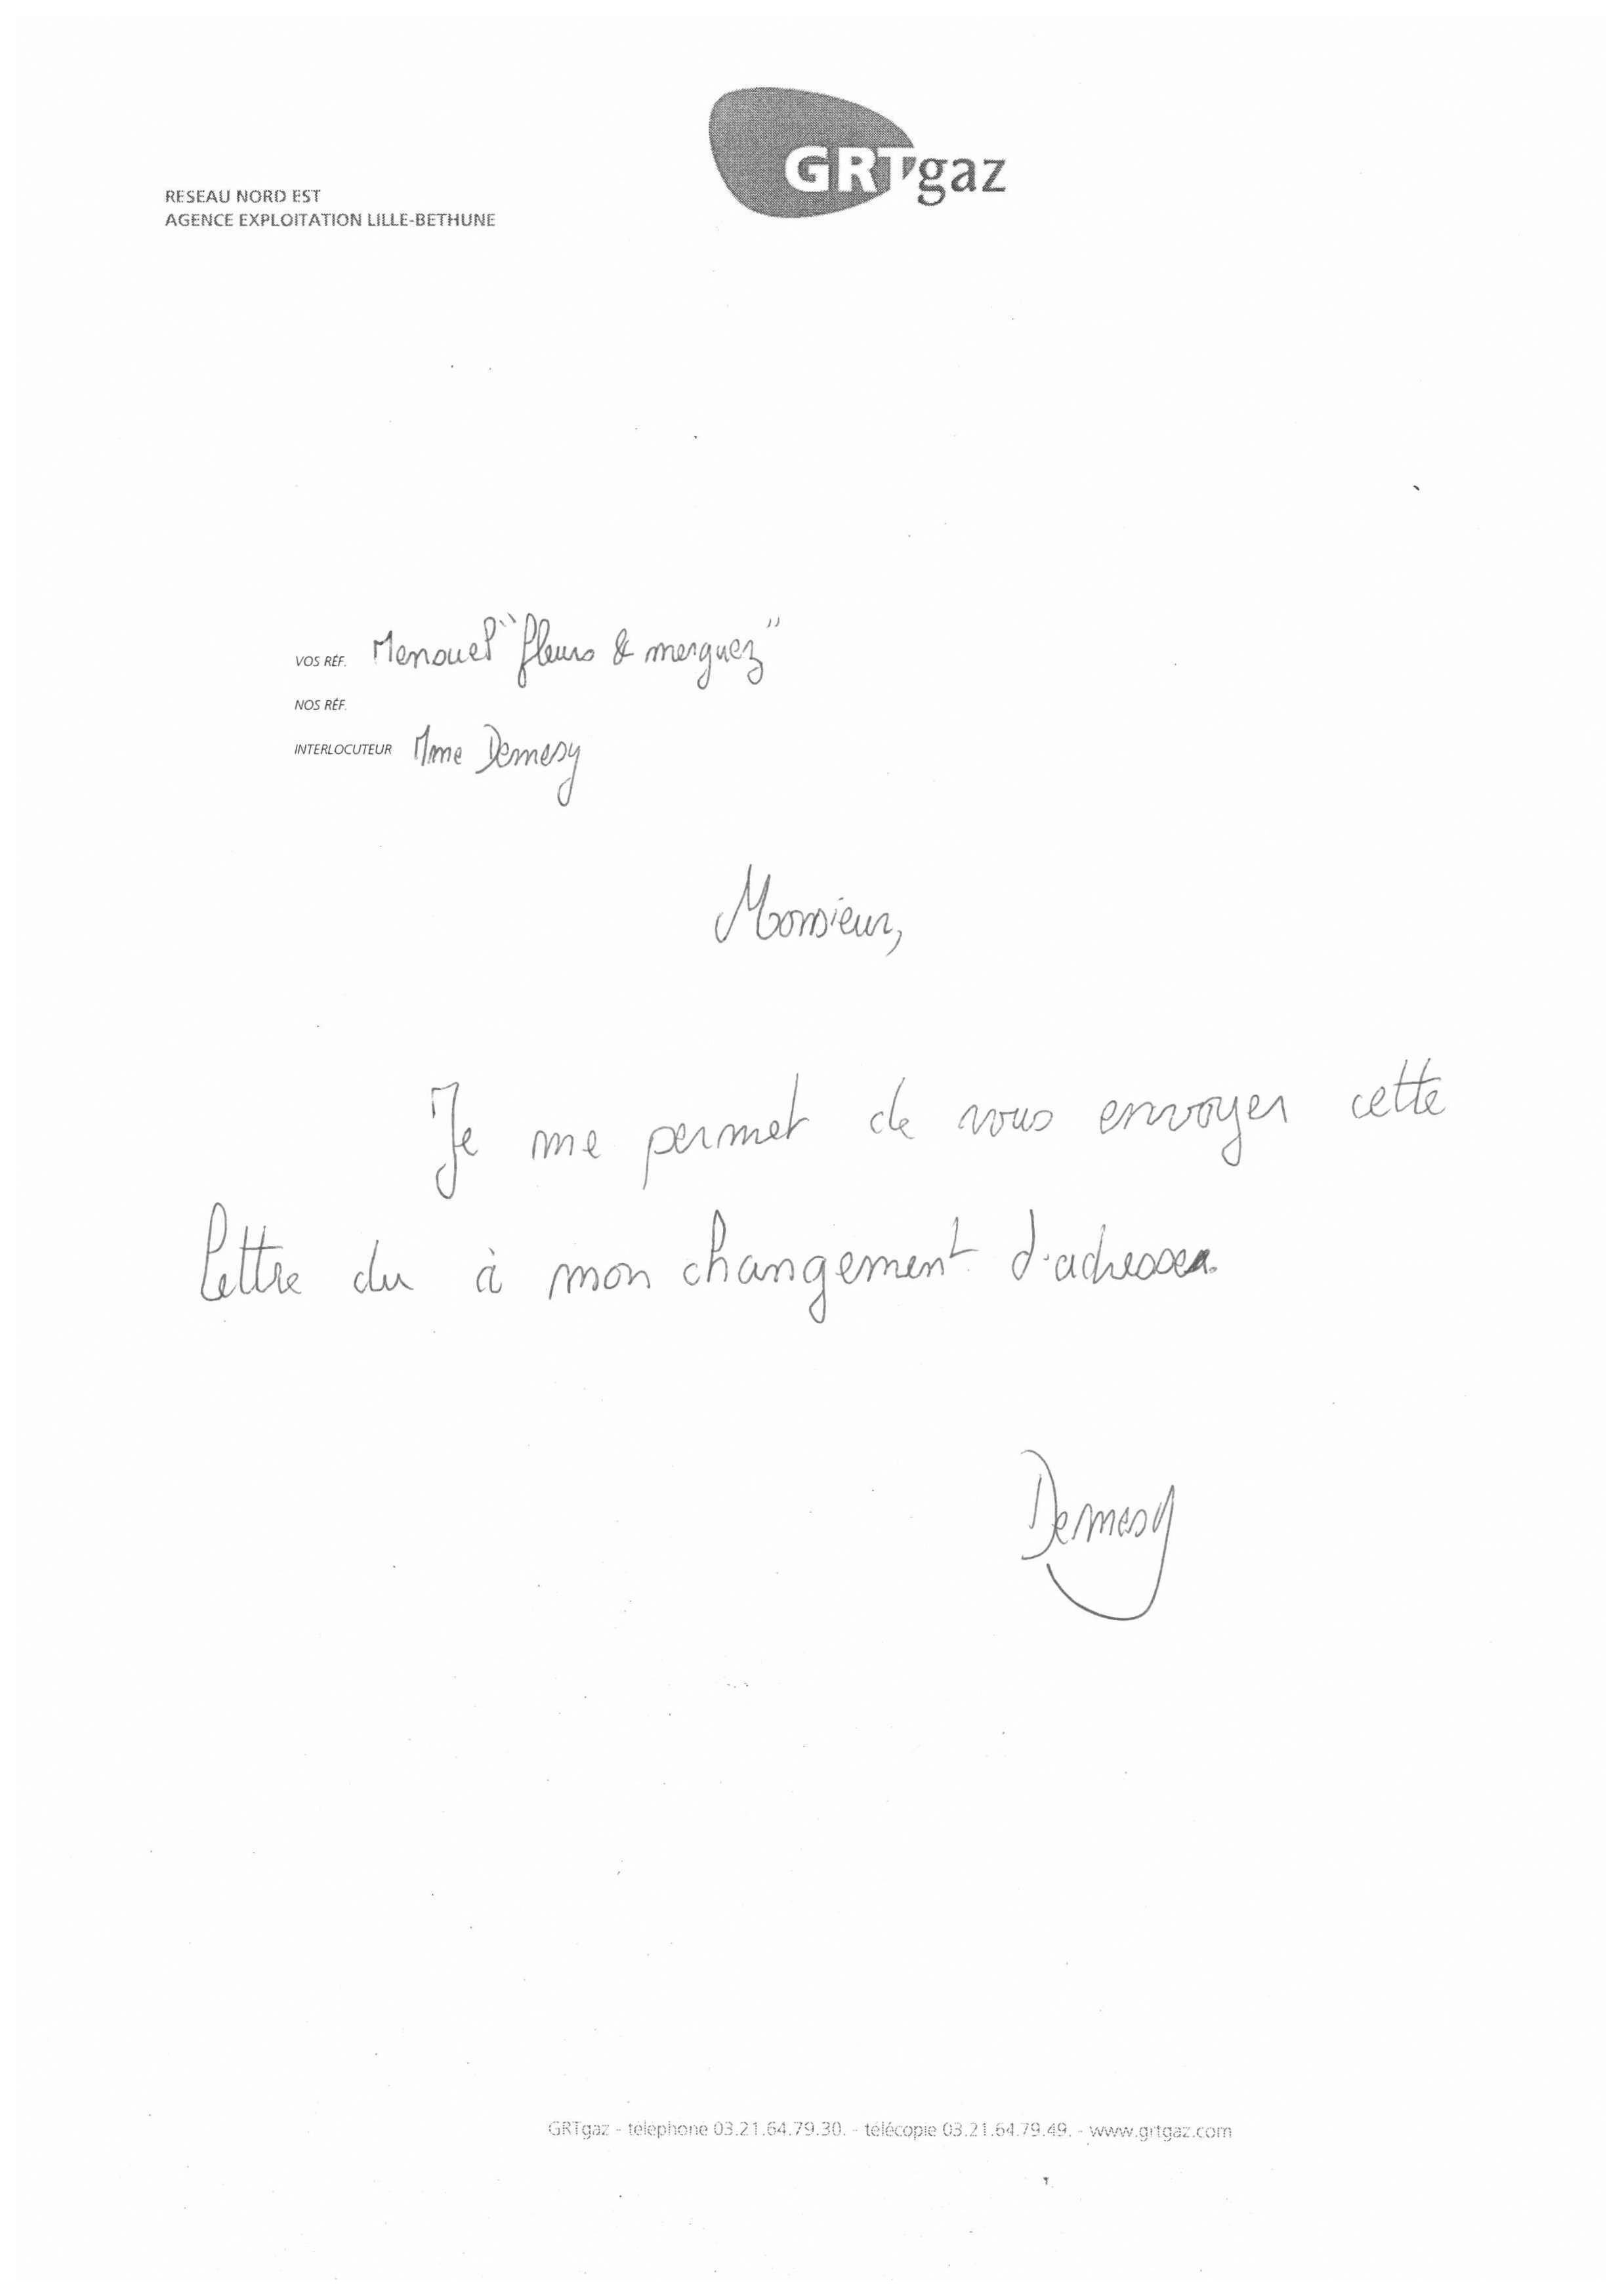 GRTgaz
RESEAU NORD EST
AGENCE EXPLOITATION LILLE-BETHUNE
VOS RÉF. Menouel "fleurs & merguez"
NOS RÉF.
INTERLOCUTEUR Mme Demesy
Monsieur,
Je me permet de vous envoyer cette
lettre du à mon changement d'adresse.
Demesy
GRTgaz - téléphone 03.21.64.79.30. - télécopie 03.21.64.79.49. - www.grtgaz.com